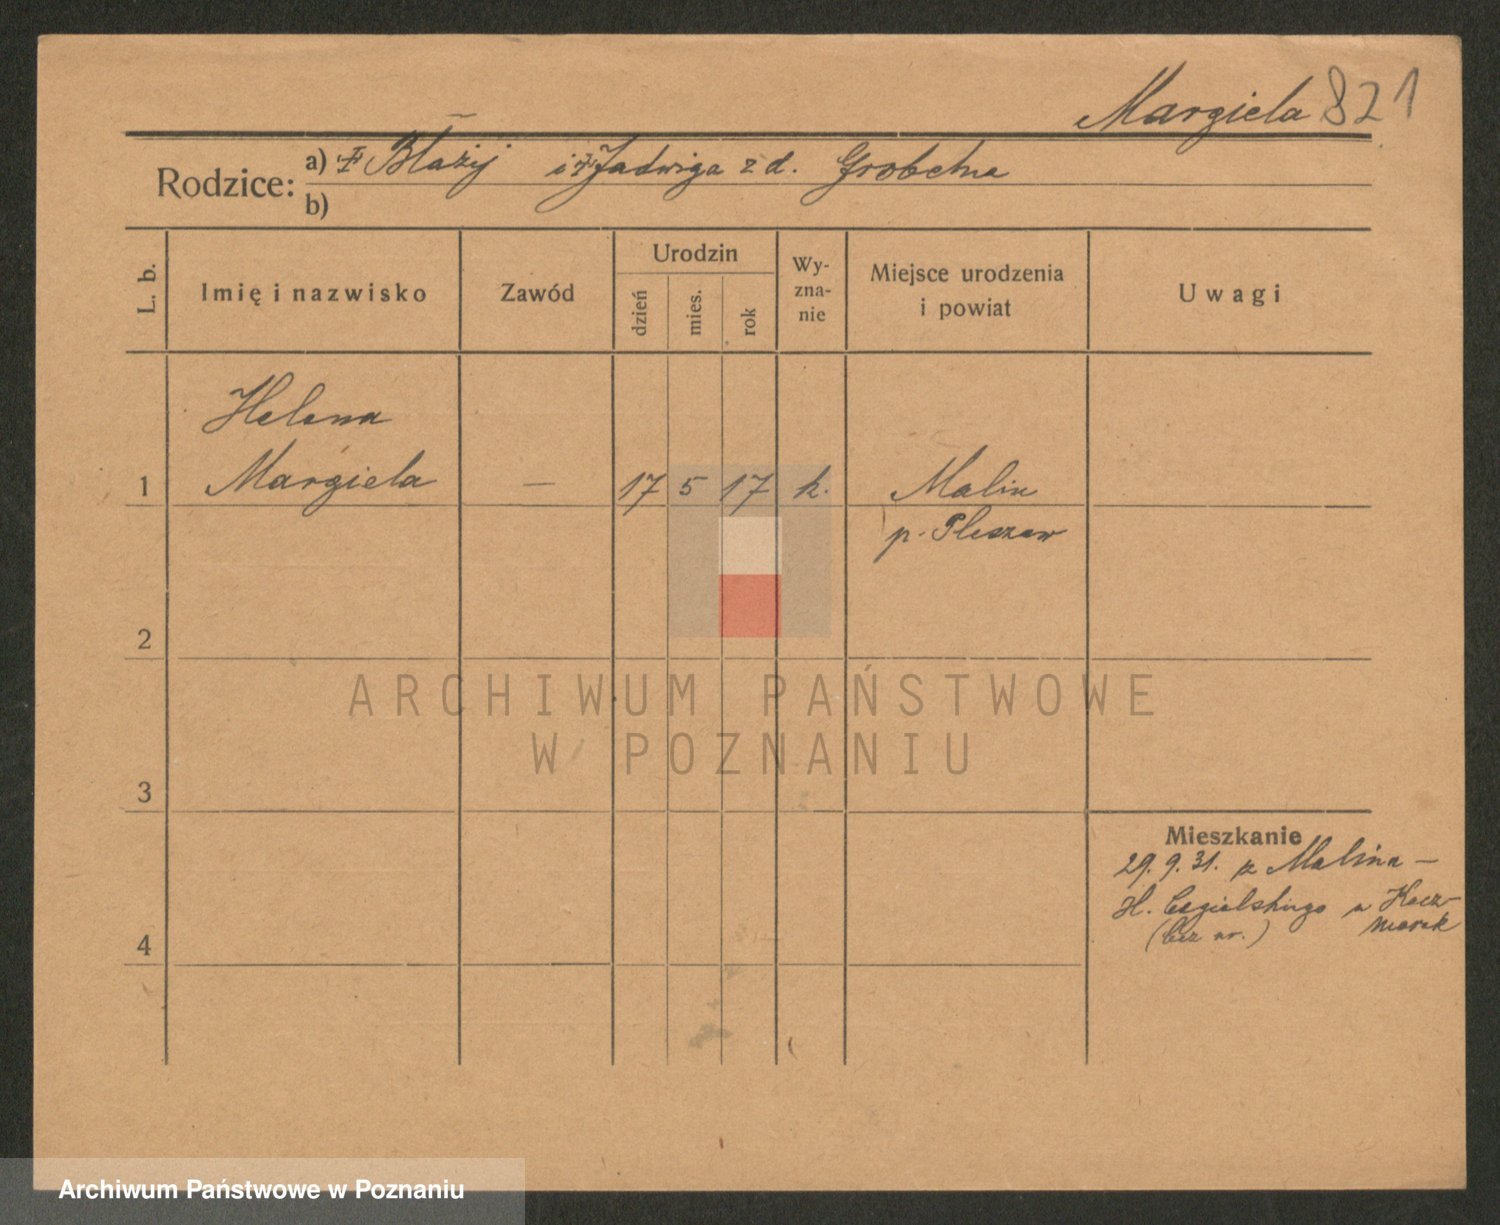 Margiela 821
Rodzice:
a) † Błażij i † Jadwiga z d. Grobelna
b)
L. b.
Imię i nazwisko
Zawód
Urodzin
dzień
mies.
rok
Wy-
zna-
nie
Miejsce urodzenia
i powiat
Uwagi
Helena
1 Margiela — 17 5 17 k. Malin
p. Pleszew
2
3
4
Mieszkanie
29. 9. 31. z Malina –
H. Cegielskiego u Kacz-
marek
(bez nr.)
ARCHIWUM PAŃSTWOWE
W POZNANIU
Archiwum Państwowe w Poznaniu